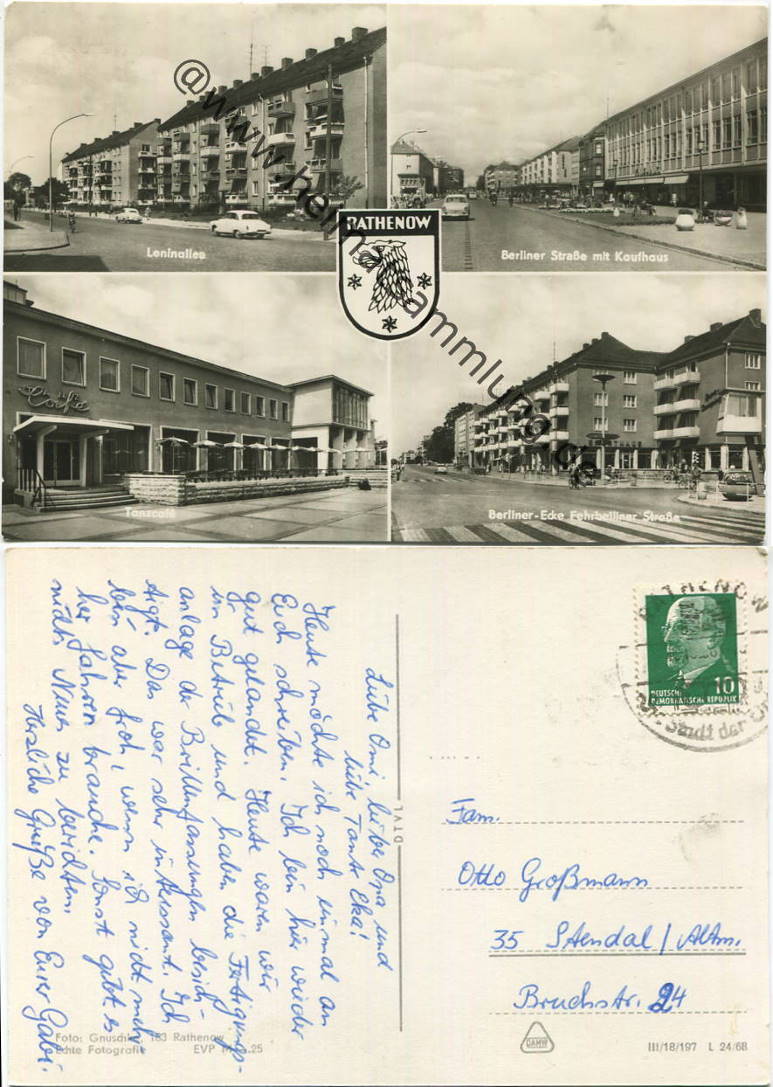 @www.heimatsammlung.de
RATHENOW
Leninallee
Berliner Straße mit Kaufhaus
Café
Tanzcafé
Berliner-Ecke Fehrbelliner Straße
Liebe Omi, lieber Opa und
liebe Tante Eka!
Heute möchte ich noch einmal an
Euch schreiben. Ich bin hier wieder
gut gelandet. Heute waren wir
im Betrieb und haben die Fertigungs-
anlage der Brillenfassungen besich-
tigt. Das war sehr interessant. Ich
bin aber froh, wenn ich nicht mehr
her fahren brauche. Sonst gibt es
nichts Neues zu berichten.
Herzliche Grüße von Eurer Gabi.
DTVL
RATHENOW
Stadt der
DEUTSCHE
DEMOKRATISCHE REPUBLIK
10
Fam.
Otto Großmann
35 Stendal / Altm.
Bruchstr. 24
Foto: Gnuschke, 183 Rathenow
Echte Fotografie EVP M 0.25
DAMW
III/18/197 L 24/68